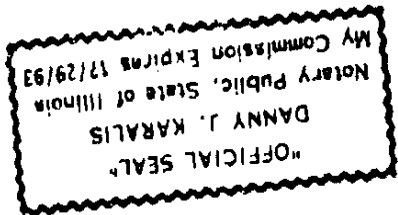 "OFFICIAL SEAL"
DANNY J. KARALIS
Notary Public, State of Illinois
My Commission Expires 12/29/93